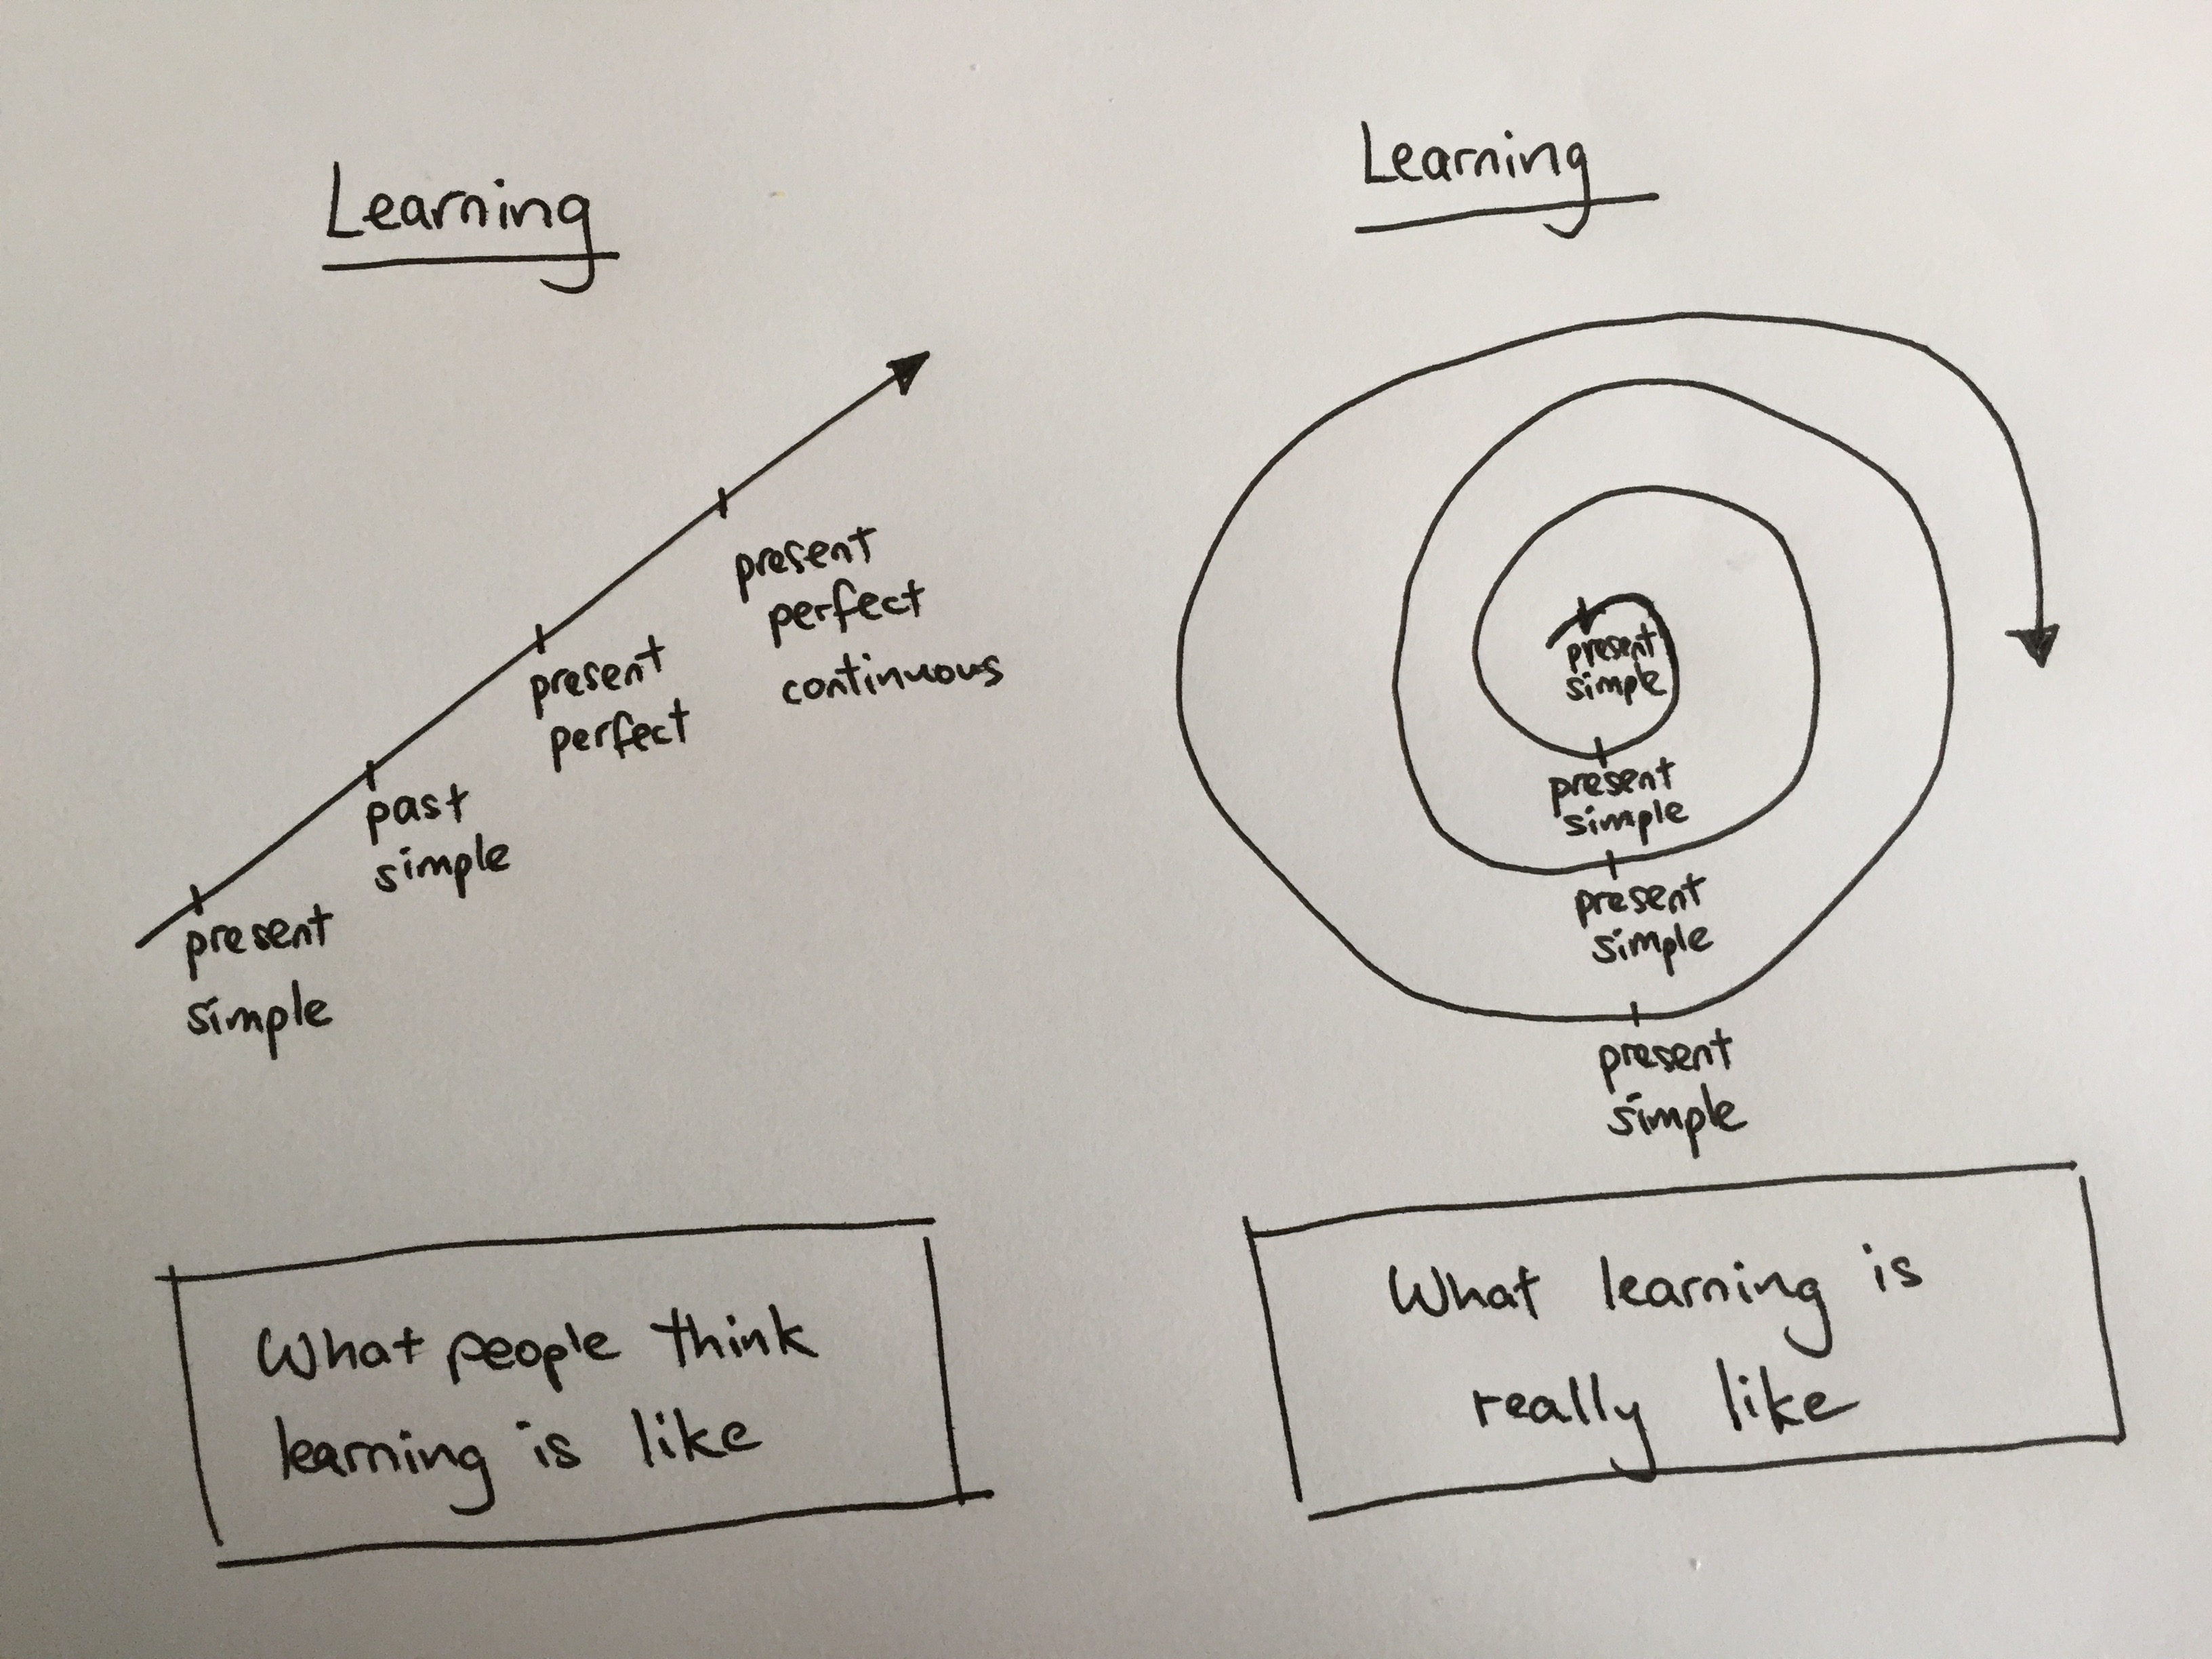 Learning
present
simple
past
simple
present
perfect
present
perfect
continuous
What people think
learning is like
Learning
present
simple
present
simple
present
simple
present
simple
What learning is
really like